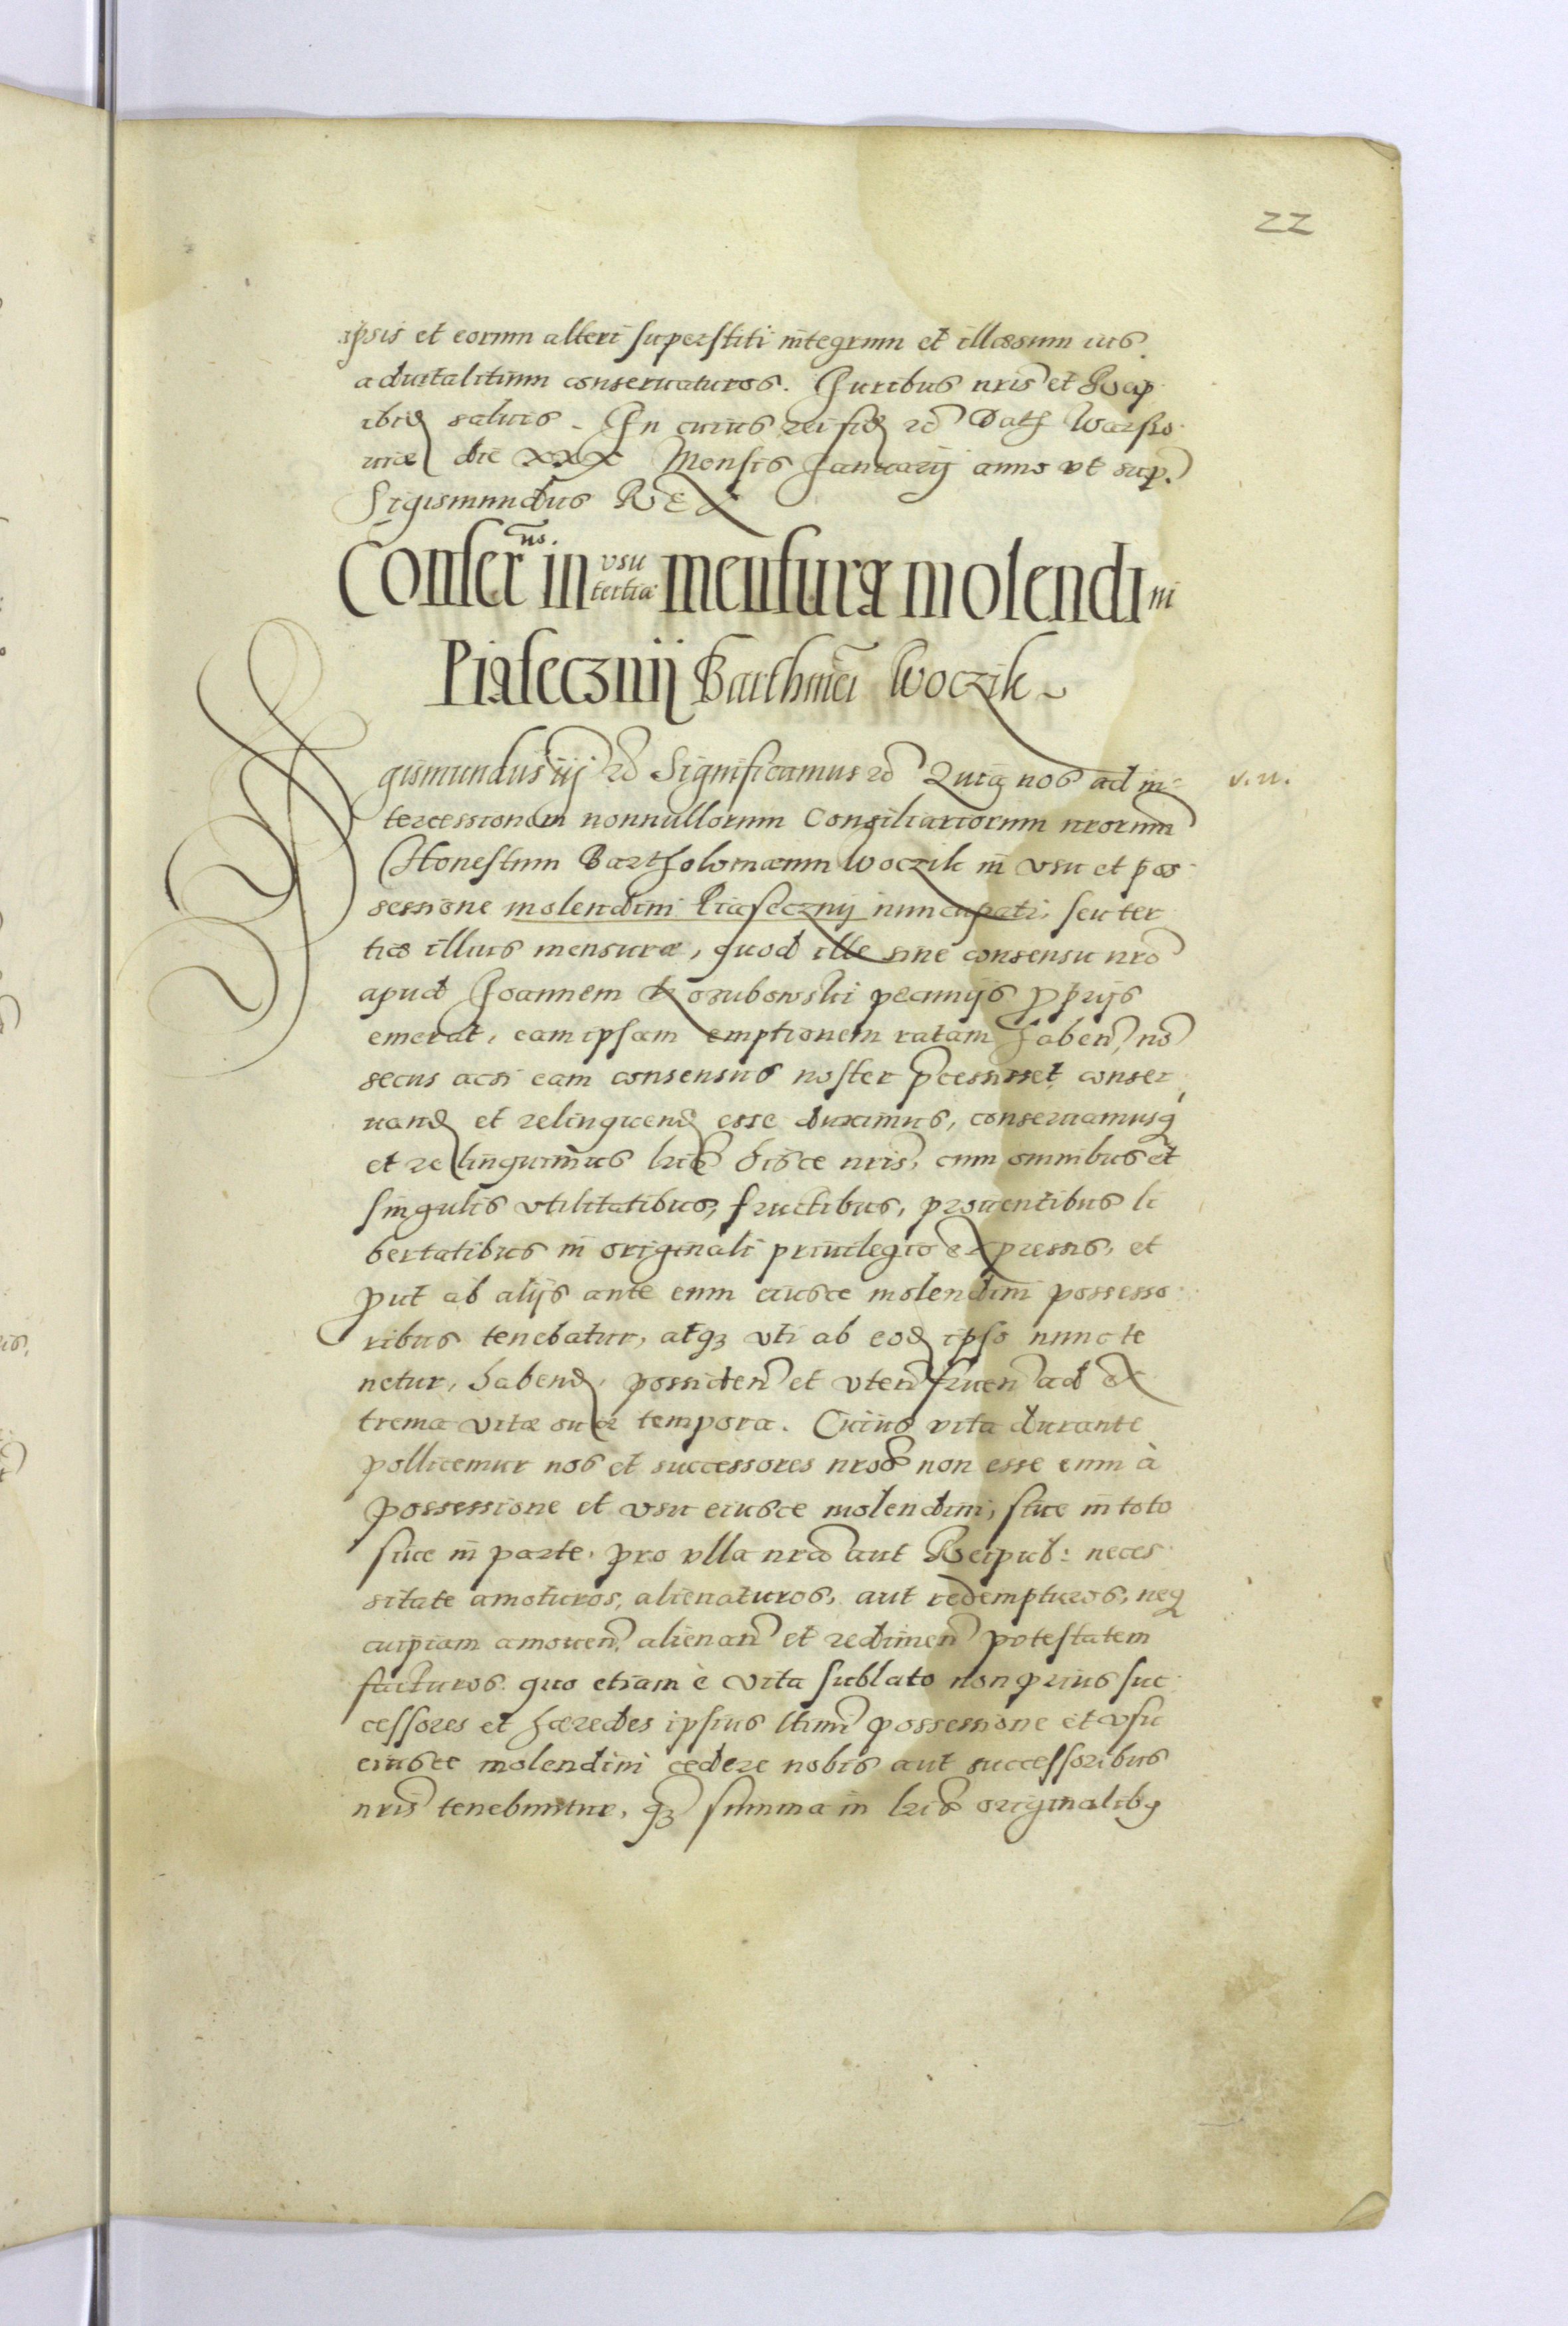 22
ipsis et eorum alteri superstiti integrum et illæsum ius
aduitalitium conseruaturos. Iuribus nris et Reip
ibid saluis. In cuius rei fid rc Dat Warsio
uiæ die XXX Mensis Januarij anno vt sup.
Sigismundus REX
Conser ns. in vsu tertiæ mensuræ molendini
Piasecznij Barthmei Woczik
gismundus iij rc Significamus rc Quia nos ad in-
v. n.
tercessionem nonnullorum Consiliariorum nrorum
Honestum Bartholomæum Woczik in vsu et pos
sessione molendini Piasecznij nuncupati, seu ter
tiæ illius mensuræ, quod ille sine consensu nro
apud Joannem Korubowski pecunijs pprijs
emerat, eam ipsam emptionem ratam haben, no
secus acsi eam consensus noster pcessisset conser
uand et relinquend esse duximus, conseruamusq
et relinquimus lris hisce nris, cum omnibus et
singulis vtilitatibus, fructibus, prouentibus li
bertatibus in originali priuilegio expressis, et
put ab alijs ante eum eiusce molendini possesso
ribus tenebatur, atq vti ab eod ipso nunc te
netur, habend, possiden et vten fruen ad ex
trema vitæ suæ tempora. Cuius vita durante
pollicemur nos et successores nros non esse eum à
possessione et vsu eiusce molendini, siue in toto
siue in parte, pro vlla nra aut Reipub: neces
sitate amoturos, alienaturos, aut redempturos, neq
cuipiam amouen, alienan et redimen potestatem
facturos. quo etiam è vita sublato non prius suc
cessores et hæredes ipsius ltimi possessione et vsu
eiusce molendini cedere nobis aut successoribus
nris tenebuntur, q summa in lris originalibq